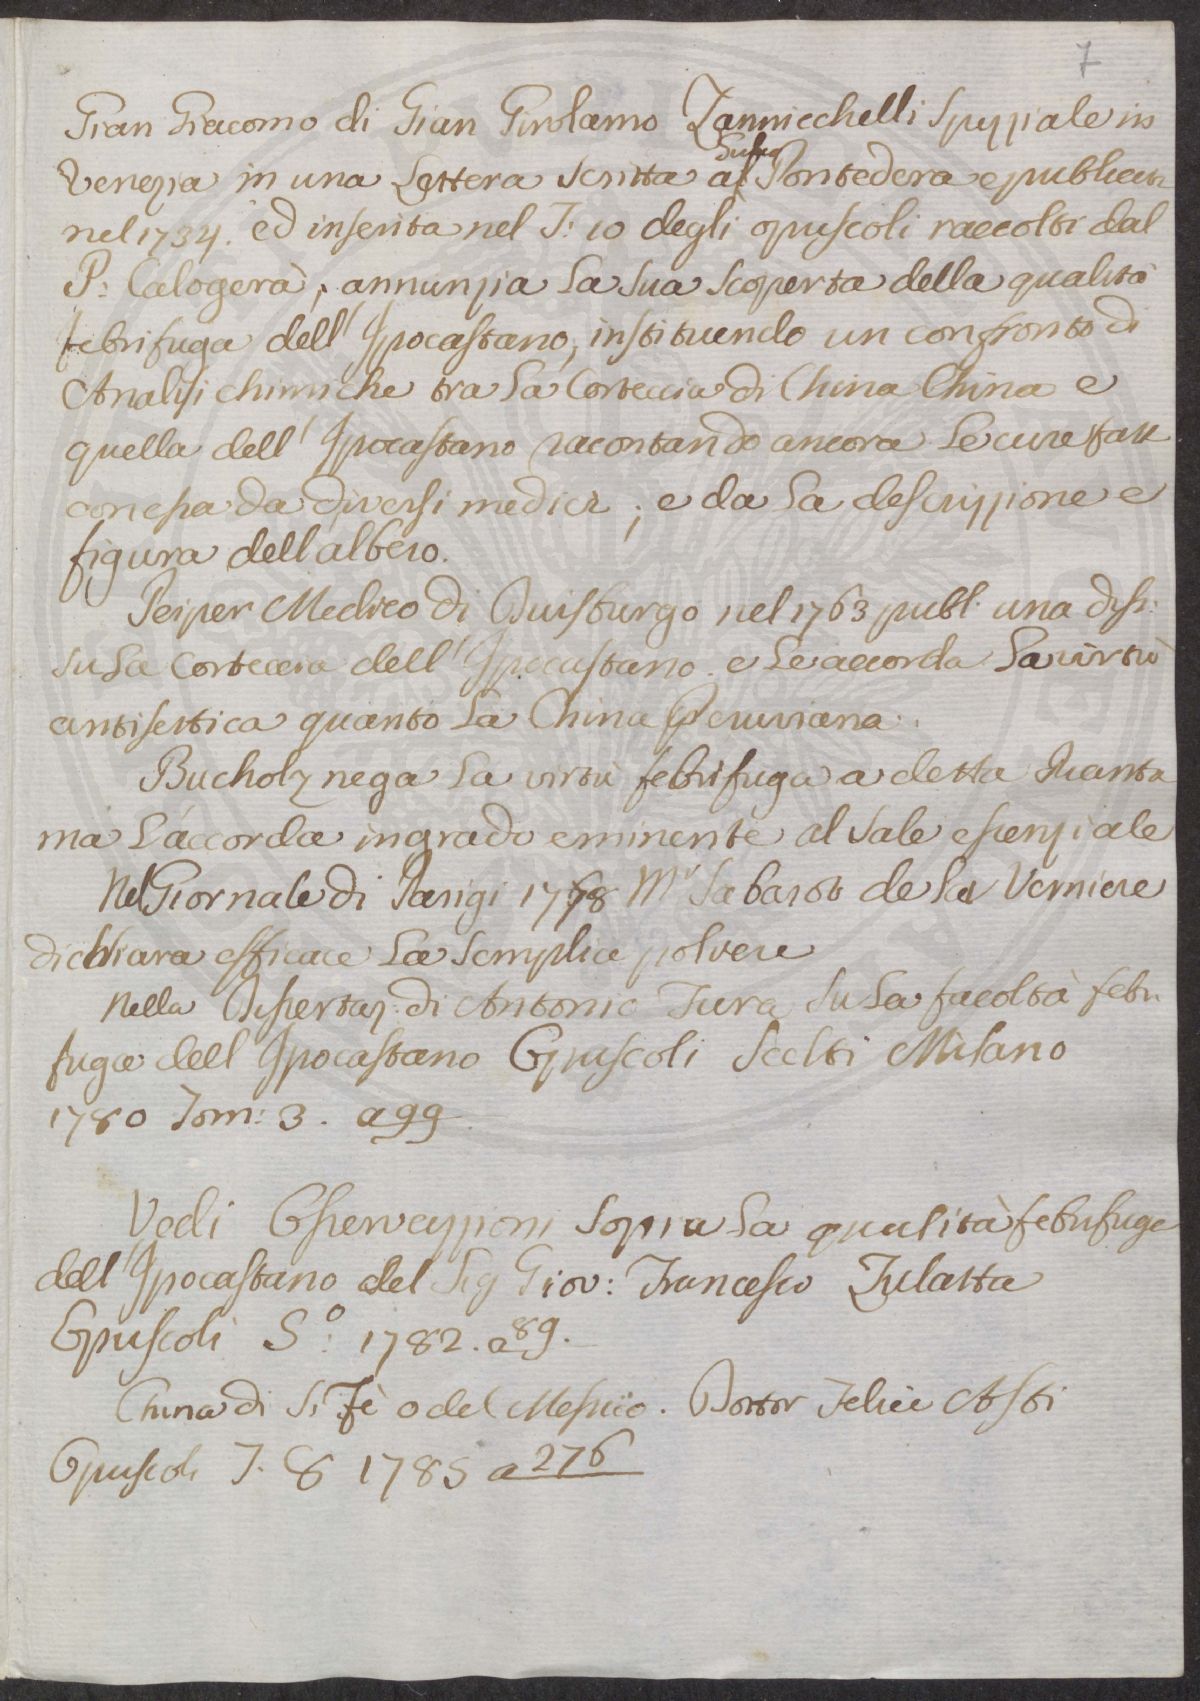 7
Gian Giacomo di Gian Girolamo Zannicchelli Speziale in
Venezia in una Lettera scritta al Pontedera e publicata
nel 1734. ed inserita nel T: 10 degli opuscoli raccolti dal
P: Calogerà, annunzia la sua scoperta della qualità
febrifuga dell'Ipocastano, instituendo un confronto di
Analisi chimiche tra la Corteccia di China China e
quella dell'Ipocastano racontando ancora le cure fatte
con essa da diversi medici; e da la descrizzione e
figura dell albero.
Peiper Medico di Duisburgo nel 1763 publ. una diss:
su la corteccia dell'Ipocastano. e le accorda la virtù
antisettica quanto la China Peruviana.
Bucholz nega la virtù febrifuga a detta Pianta
ma l'accorda in grado eminente al sale essenziale
Nel Giornale di Parigi 1778 Mr Sabarot de la Verniere
dichiara efficace la semplice polvere
Nella Dissertaz: di Antonio Tura su la facoltà febri
fuga dell Ipocastano Opuscoli Scelti Milano
1780 Tom: 3. a 99
Vedi Osservazzioni sopra la qualità febrifuga
dell'Ipocastano del Sig Giov: Francesco Zulatta
Opuscoli S.º: 1782. a 89.
China di S. Fè o del Messico. Dottor Felice Asti
Opuscoli T. 8 1785 a 276